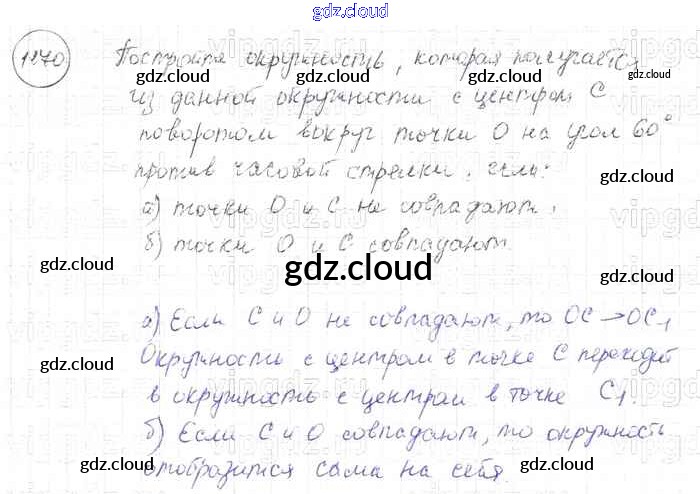 gdz.cloud
1270 Постройте окружность, которая получается
из данной окружности с центром С
поворотом вокруг точки О на угол 60°
против часовой стрелки, если:
а) точки О и С не совпадают,
б) точки О и С совпадают
а) Если С и О не совпадают, то ОС → ОС₁
Окружность с центром в точке С переходит
в окружность с центром в точке С₁.
б) Если С и О совпадают, то окружность
отобразится сама на себя.
gdz.cloud
gdz.cloud
gdz.cloud
gdz.cloud
gdz.cloud
gdz.cloud
gdz.cloud
gdz.cloud
gdz.cloud
gdz.cloud
gdz.cloud
gdz.cloud
gdz.cloud